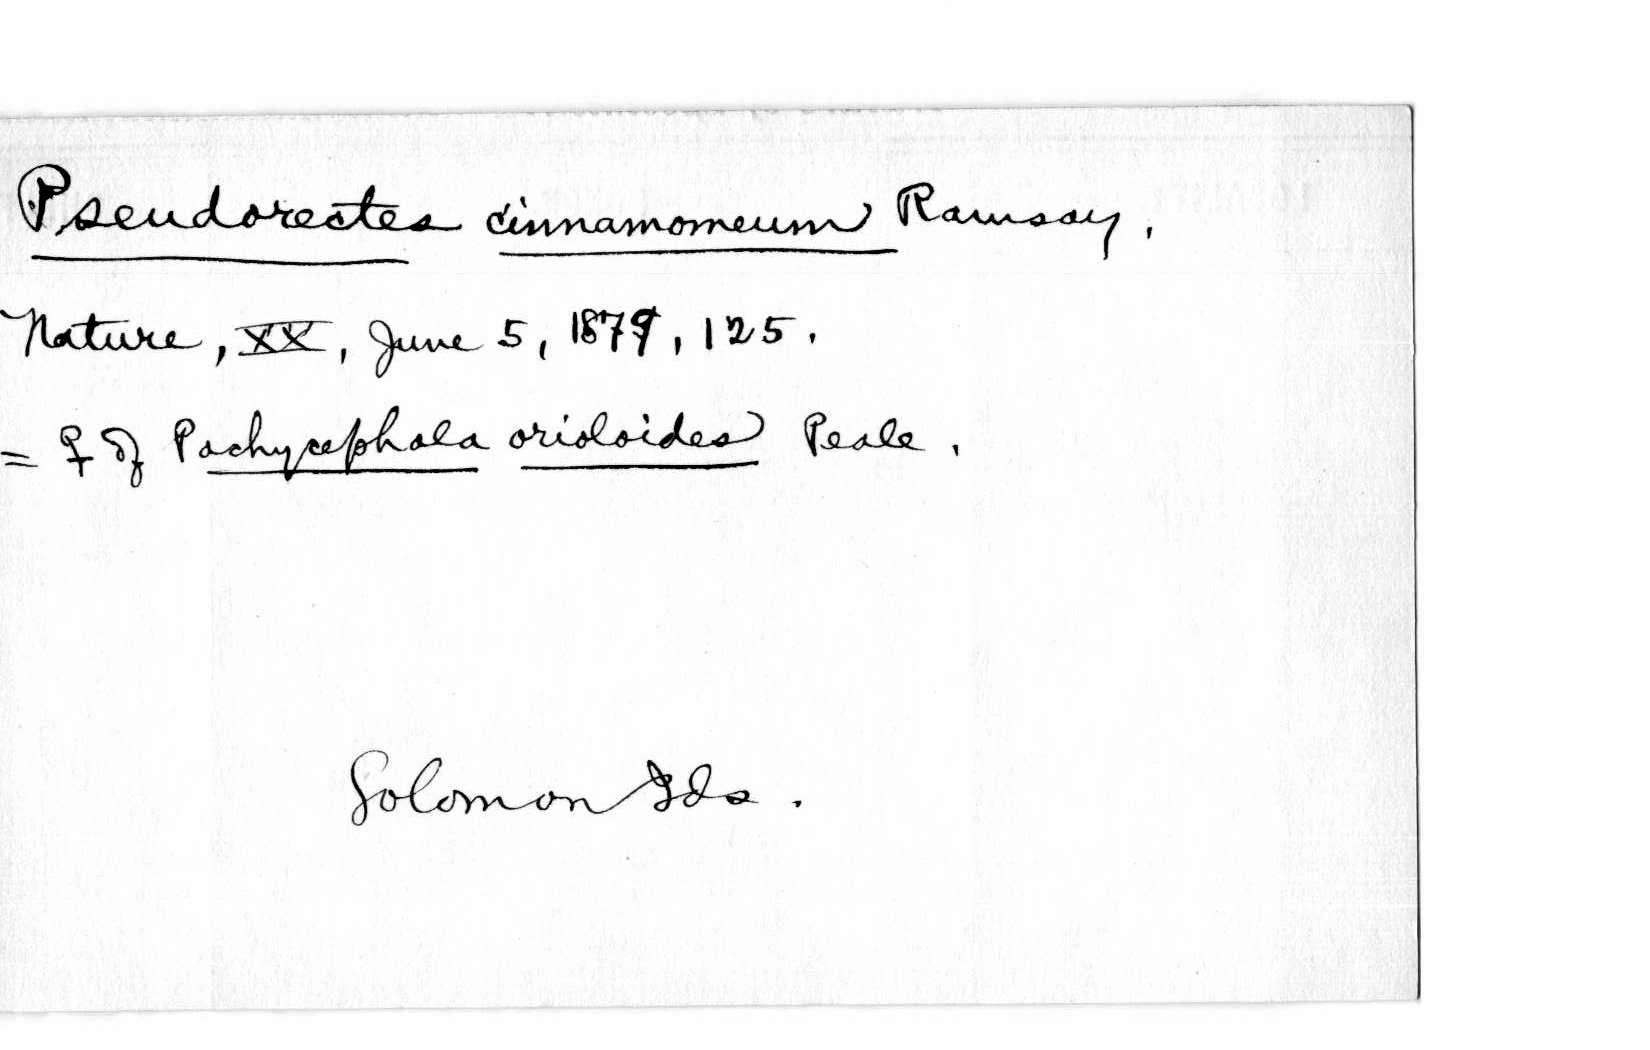 Pseudorectes cinnamomeum Ramsay.
Nature, XX, June 5, 1879, 125.
= ♀ of Pachycephala orioloides Peale.
Solomon Ids.